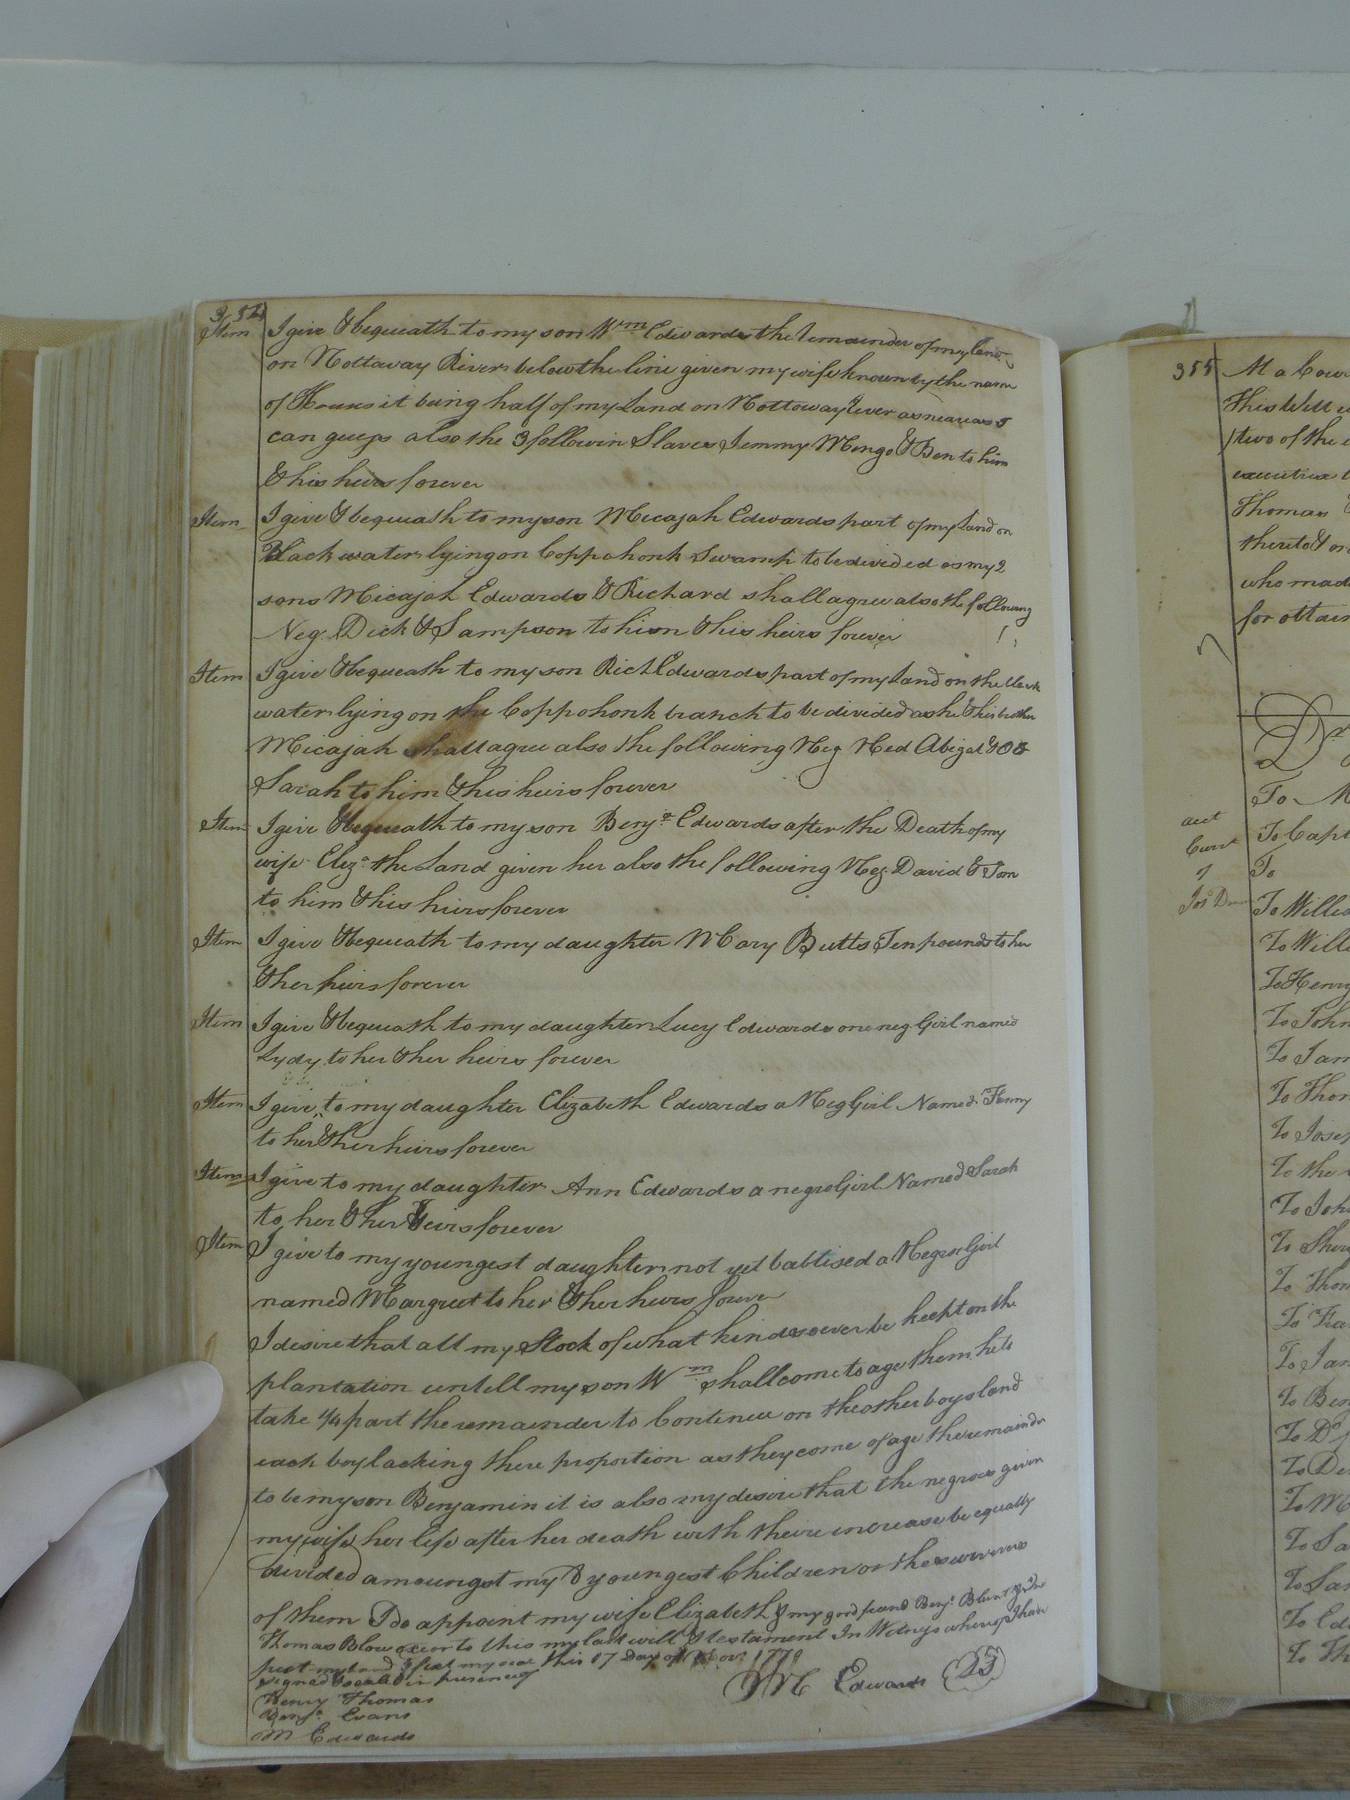 354
Item I give & bequeath to my son Wm Edwards the Remainder of my land
on Nottaway River below the line given my wife known by the name
of it being half of my Land on Nottoway River as near as I
can guess also the 3 followin Slaves Jemmy Mingo & Ben to him
& his heirs forever
Item I give & bequeath to my son Micajah Edwards part of my Land on
Black water lying on Coppohonk Swamp to be divided as my 2
sons Micajah Edwards & Richard shall agree also the following
Neg. Dick & Sampson to him & his heirs forever
Item I give & bequeath to my son Rich Edwards part of my Land on the black
water lying on the Coppohonk branch to be divided as he & his brother
Micajah shall agree also the following Neg Ned Abigal &
Sarah to him & his heirs forever
Item I give & bequeath to my son Benja Edwards after the Death of my
wife Eliza the Land given her also the following Neg David & Tom
to him & his heirs forever
Item I give & bequeath to my daughter Mary Butts Ten pounds to her
& her heirs forever
Item I give & bequeath to my daughter Lucy Edwards one neg Girl named
Lydy to her & her heirs forever
Item I give to my daughter Elizabeth Edwards a Neg Girl Named Fanny
to her & her heirs forever
Item I give to my daughter Ann Edwards a negro Girl Named Sarah
to her & her Heirs forever
Item I give to my youngest daughter not yet babtised a Negroe Girl
named Margreet to her & her heirs forever
I desire that all my Stock of what kind soever be keept on the
plantation untell my son Wm shall come to age them he to
take 1/4 part the remainder to Contineu on the other boys land
each boy lacking there proportion as they come of age the remainder
to be my son Benjamin it is also my desire that the negroes given
my wife her life after her death with there increase be equally
divided amoungst my 8 youngest Children or the survivers
of them I do appoint my wife Elizabeth & my good friend Benja Blunt &
Thomas Blow exor to this my last will & testament In Witness whereof I have
set my hand & my seal this 17 Day of Nov. 1770
signed & seald in presence of
Henry Thomas
Benja Evans
M Edwards
Wm Edwards (LS)
355
At a Cour
This Will
two of the
executrix
Thomas
thereto & on
who mad
for obtain
Dr
acct
Curt
of
Jos
To M
To Capt
To
To Willia
To Will
To Henry
To John
To Jam
To Thom
To Josep
To the
To John
To
To Thom
To Fra
To Jam
To Ben
To Dr
To De
To M
To Sa
To Sar
To Ed
To Th